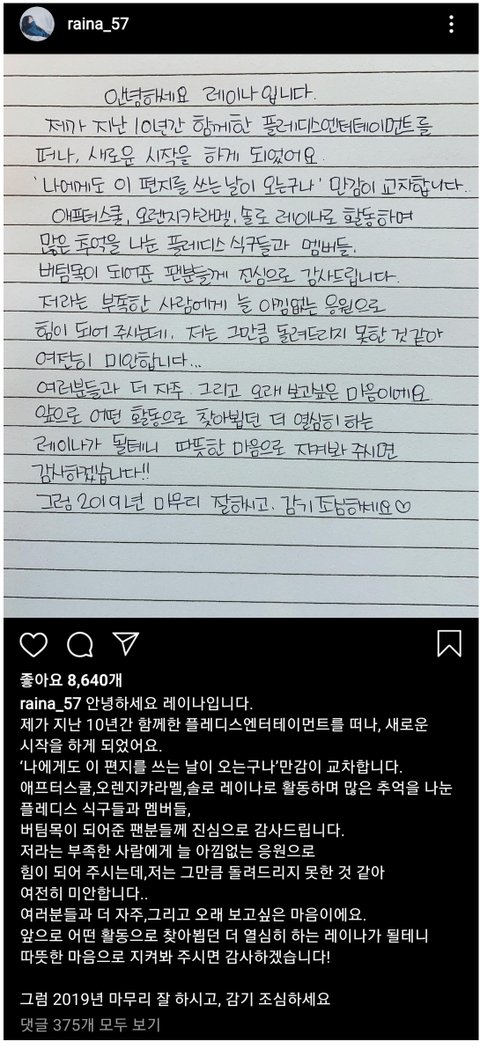 raina_57
안녕하세요 레이나입니다.
제가 지난 10년간 함께한 플레디스엔터테이먼트를
떠나, 새로운 시작을 하게 되었어요.
'나에게도 이 편지를 쓰는 날이 오는구나' 만감이 교차합니다..
애프터스쿨, 오렌지캬라멜, 솔로 레이나로 활동하며
많은 추억을 나눈 플레디스 식구들과 멤버들,
버팀목이 되어준 팬분들께 진심으로 감사드립니다.
저라는 부족한 사람에게 늘 아낌없는 응원으로
힘이 되어 주시는데, 저는 그만큼 돌려드리지 못한 것 같아
여전히 미안합니다...
여러분들과 더 자주, 그리고 오래 보고싶은 마음이에요
앞으로 어떤 활동으로 찾아뵙던 더 열심히 하는
레이나가 될테니 따뜻한 마음으로 지켜봐 주시면
감사하겠습니다!!
그럼 2019년 마무리 잘하시고, 감기 조심하세요♡
좋아요 8,640개
raina_57 안녕하세요 레이나입니다.
제가 지난 10년간 함께한 플레디스엔터테이먼트를 떠나, 새로운
시작을 하게 되었어요.
‘나에게도 이 편지를 쓰는 날이 오는구나’만감이 교차합니다.
애프터스쿨,오렌지캬라멜,솔로 레이나로 활동하며 많은 추억을 나눈
플레디스 식구들과 멤버들,
버팀목이 되어준 팬분들께 진심으로 감사드립니다.
저라는 부족한 사람에게 늘 아낌없는 응원으로
힘이 되어 주시는데,저는 그만큼 돌려드리지 못한 것 같아
여전히 미안합니다..
여러분들과 더 자주,그리고 오래 보고싶은 마음이에요.
앞으로 어떤 활동으로 찾아뵙던 더 열심히 하는 레이나가 될테니
따뜻한 마음으로 지켜봐 주시면 감사하겠습니다!
그럼 2019년 마무리 잘 하시고, 감기 조심하세요
댓글 375개 모두 보기